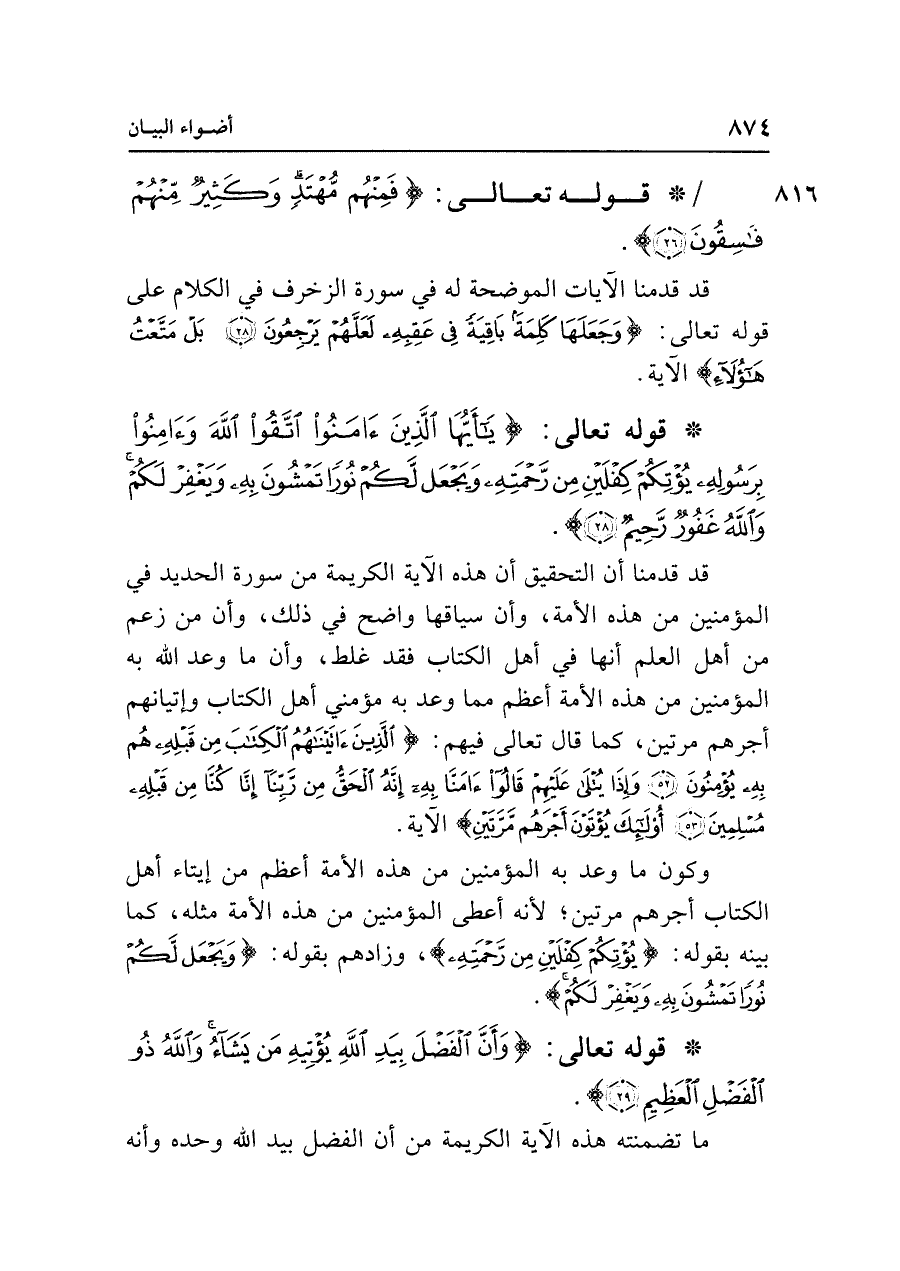 ٨٧٤ أضـواء البيـان
٨١٦ / * قـولـه تعـالـى: ﴿ فَمِنْهُم مُّهْتَدٍۖ وَكَثِيرٌ مِّنْهُمْ
فَٰسِقُونَ ﴿٢٦﴾ ﴾ .
قد قدمنا الآيات الموضحة له في سورة الزخرف في الكلام على
قوله تعالى: ﴿ وَجَعَلَهَا كَلِمَةًۢ بَاقِيَةً فِى عَقِبِهِۦ لَعَلَّهُمْ يَرْجِعُونَ ﴿٢٨﴾ بَلْ مَتَّعْتُ
هَٰٓؤُلَآءِ﴾ الآية.
* قوله تعالى: ﴿ يَٰٓأَيُّهَا ٱلَّذِينَ ءَامَنُوا۟ ٱتَّقُوا۟ ٱللَّهَ وَءَامِنُوا۟
بِرَسُولِهِۦ يُؤْتِكُمْ كِفْلَيْنِ مِن رَّحْمَتِهِۦ وَيَجْعَل لَّكُمْ نُورًا تَمْشُونَ بِهِۦ وَيَغْفِرْ لَكُمْۚ
وَٱللَّهُ غَفُورٌ رَّحِيمٌ ﴿٢٨﴾ ﴾ .
قد قدمنا أن التحقيق أن هذه الآية الكريمة من سورة الحديد في
المؤمنين من هذه الأمة، وأن سياقها واضح في ذلك، وأن من زعم
من أهل العلم أنها في أهل الكتاب فقد غلط، وأن ما وعد الله به
المؤمنين من هذه الأمة أعظم مما وعد به مؤمني أهل الكتاب وإتيانهم
أجرهم مرتين، كما قال تعالى فيهم: ﴿ ٱلَّذِينَ ءَاتَيْنَٰهُمُ ٱلْكِتَٰبَ مِن قَبْلِهِۦ هُم
بِهِۦ يُؤْمِنُونَ ﴿٥٢﴾ وَإِذَا يُتْلَىٰ عَلَيْهِمْ قَالُوٓا۟ ءَامَنَّا بِهِۦٓ إِنَّهُ ٱلْحَقُّ مِن رَّبِّنَآ إِنَّا كُنَّا مِن قَبْلِهِۦ
مُسْلِمِينَ ﴿٥٣﴾ أُو۟لَٰٓئِكَ يُؤْتَوْنَ أَجْرَهُم مَّرَّتَيْنِ﴾ الآية.
وكون ما وعد به المؤمنين من هذه الأمة أعظم من إيتاء أهل
الكتاب أجرهم مرتين؛ لأنه أعطى المؤمنين من هذه الأمة مثله، كما
بينه بقوله: ﴿ يُؤْتِكُمْ كِفْلَيْنِ مِن رَّحْمَتِهِۦ ﴾، وزادهم بقوله: ﴿ وَيَجْعَل لَّكُمْ
نُورًا تَمْشُونَ بِهِۦ وَيَغْفِرْ لَكُمْۚ ﴾ .
* قوله تعالى: ﴿ وَأَنَّ ٱلْفَضْلَ بِيَدِ ٱللَّهِ يُؤْتِيهِ مَن يَشَآءُۚ وَٱللَّهُ ذُو
ٱلْفَضْلِ ٱلْعَظِيمِ ﴿٢٩﴾ ﴾ .
ما تضمنته هذه الآية الكريمة من أن الفضل بيد الله وحده وأنه